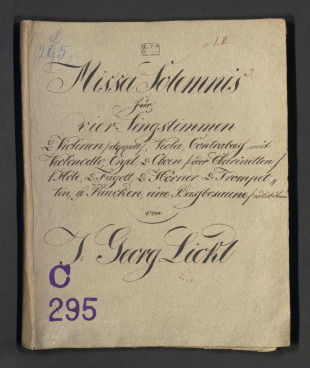 295.
Missa Solemnis
für
vier Singstimmen
2 Violinen /doppelt/, Viola, Contrabaß mit
Violoncello, Orgel, 2 Oboen /oder Clarinetten/
1 Flöte, 2 Fagott, 2 Hörner, 2 Trompet„
ten, Paucken, eine Bassposaune /ad libitum
von
J. Georg Lickl
C
295